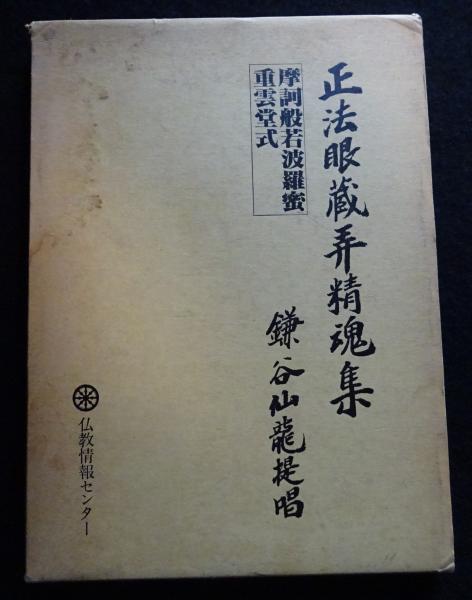 正法眼蔵弄精魂集
摩訶般若波羅蜜
重雲堂式
鎌谷仙龍提唱
仏教情報センター